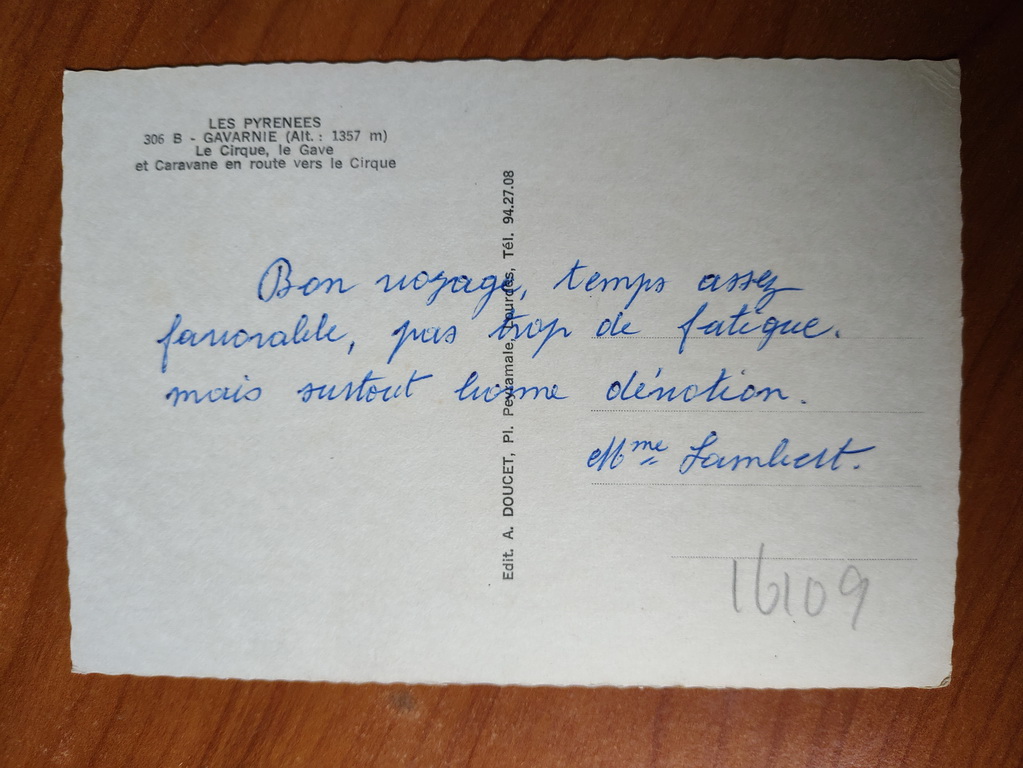 LES PYRENEES
306 B - GAVARNIE (Alt. : 1357 m)
Le Cirque, le Gave
et Caravane en route vers le Cirque
Edit. A. DOUCET, Pl. Peyramale, Lourdes, Tél. 94.27.08
Bon voyage, temps assez
favorable, pas trop de fatigue.
mais surtout bonne dévotion.
Mme Lambert.
16109